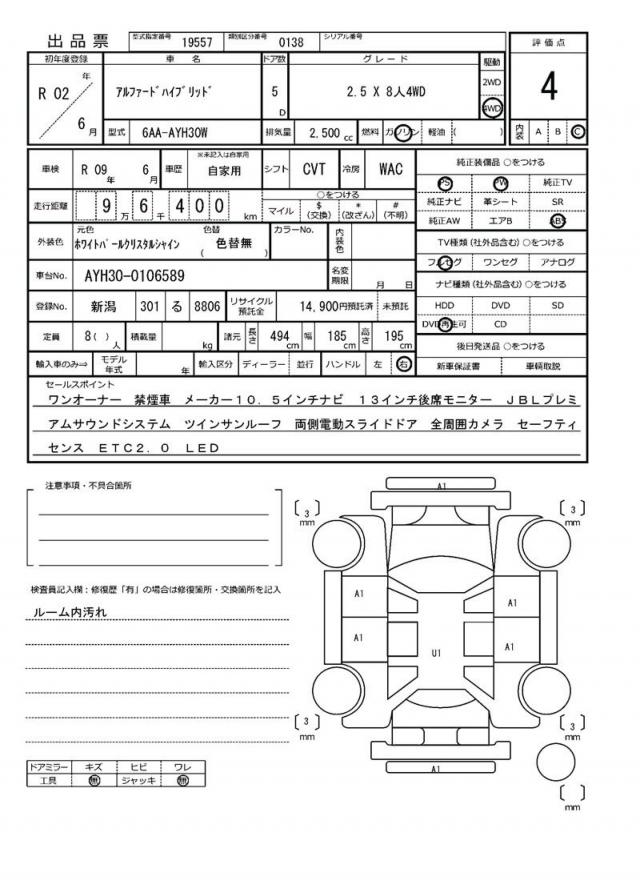 出品票 型式指定番号 19557 類別区分番号 0138 シリアル番号
初年度登録 車名 ドア数 グレード 駆動 評価点
R 02 年 6 月 アルファードハイブリッド 5 D 2.5 X 8人4WD 2WD 4WD 4
型式 6AA-AYH30W 排気量 2,500 cc 燃料 ガソリン 軽油 ( ) 内装 A B C
車検 R 09 年 6 月 車歴 ※未記入は自家用 自家用 シフト CVT 冷房 WAC 純正装備品 ○をつける
PS PW 純正TV
走行距離 9 万 6 千 4 0 0 km ○をつける マイル $ (交換) * (改ざん) # (不明) 純正ナビ 革シート SR
純正AW エアB ABS
外装色 元色 ホワイトパールクリスタルシャイン 色替 ( 色替無 ) カラーNo. 内装色 TV種類 (社外品含む) ○をつける
フルセグ ワンセグ アナログ
車台No. AYH30-0106589 名変期限 月 日 ナビ種類 (社外品含む) ○をつける
登録No. 新潟 301 る 8806 リサイクル預託金 14,900円預託済 未預託 HDD DVD SD
DVD再生可 CD
定員 8( ) 人 積載量 kg 諸元 長さ 494 cm 幅 185 cm 高さ 195 cm 後日発送品 ○をつける
輸入車のみ⇒ モデル年式 年 輸入区分 ディーラー 並行 ハンドル 左 右 新車保証書 車輌取説
セールスポイント
ワンオーナー 禁煙車 メーカー10.5インチナビ 13インチ後席モニター JBLプレミ
アムサウンドシステム ツインサンルーフ 両側電動スライドドア 全周囲カメラ セーフティ
センス ETC2.0 LED
注意事項・不具合箇所
検査員記入欄:修復歴「有」の場合は修復箇所・交換箇所を記入
ルーム内汚れ
ドアミラー キズ ヒビ ワレ
工具 無 ジャッキ 無
A1
[ 3 ] mm [ 3 ] mm
A1 A1
A1 U1 A1
[ 3 ] mm [ 3 ] mm
A1
[ ] mm